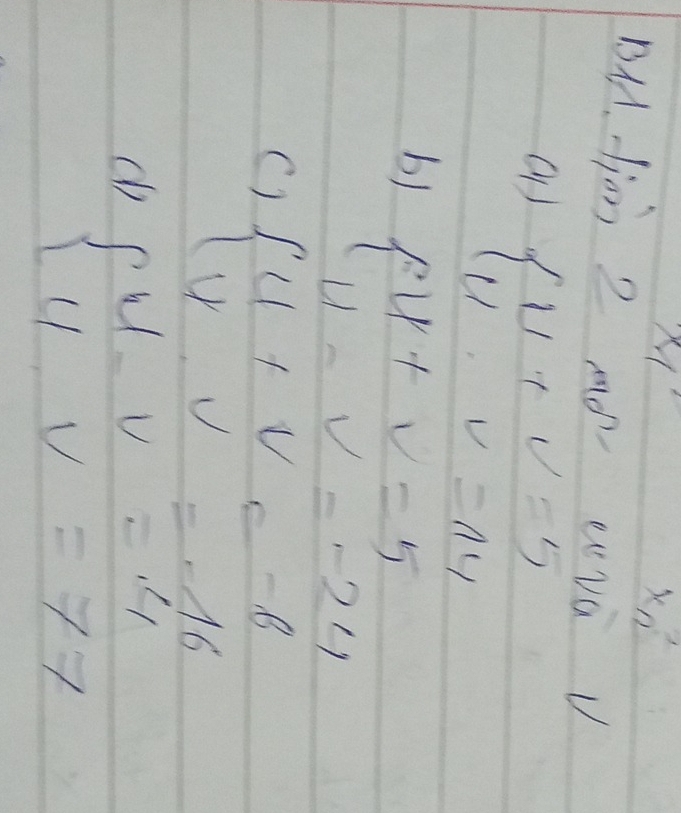 x₁² x₂²
B11. tìm 2 số u và v
a) { u + v = 5
{ u . v = 14
b) { u + v = 5
{ u . v = -24
c) { u + v = -6
{ u . v = -16
d) { u - v = 4
{ u . v = 77